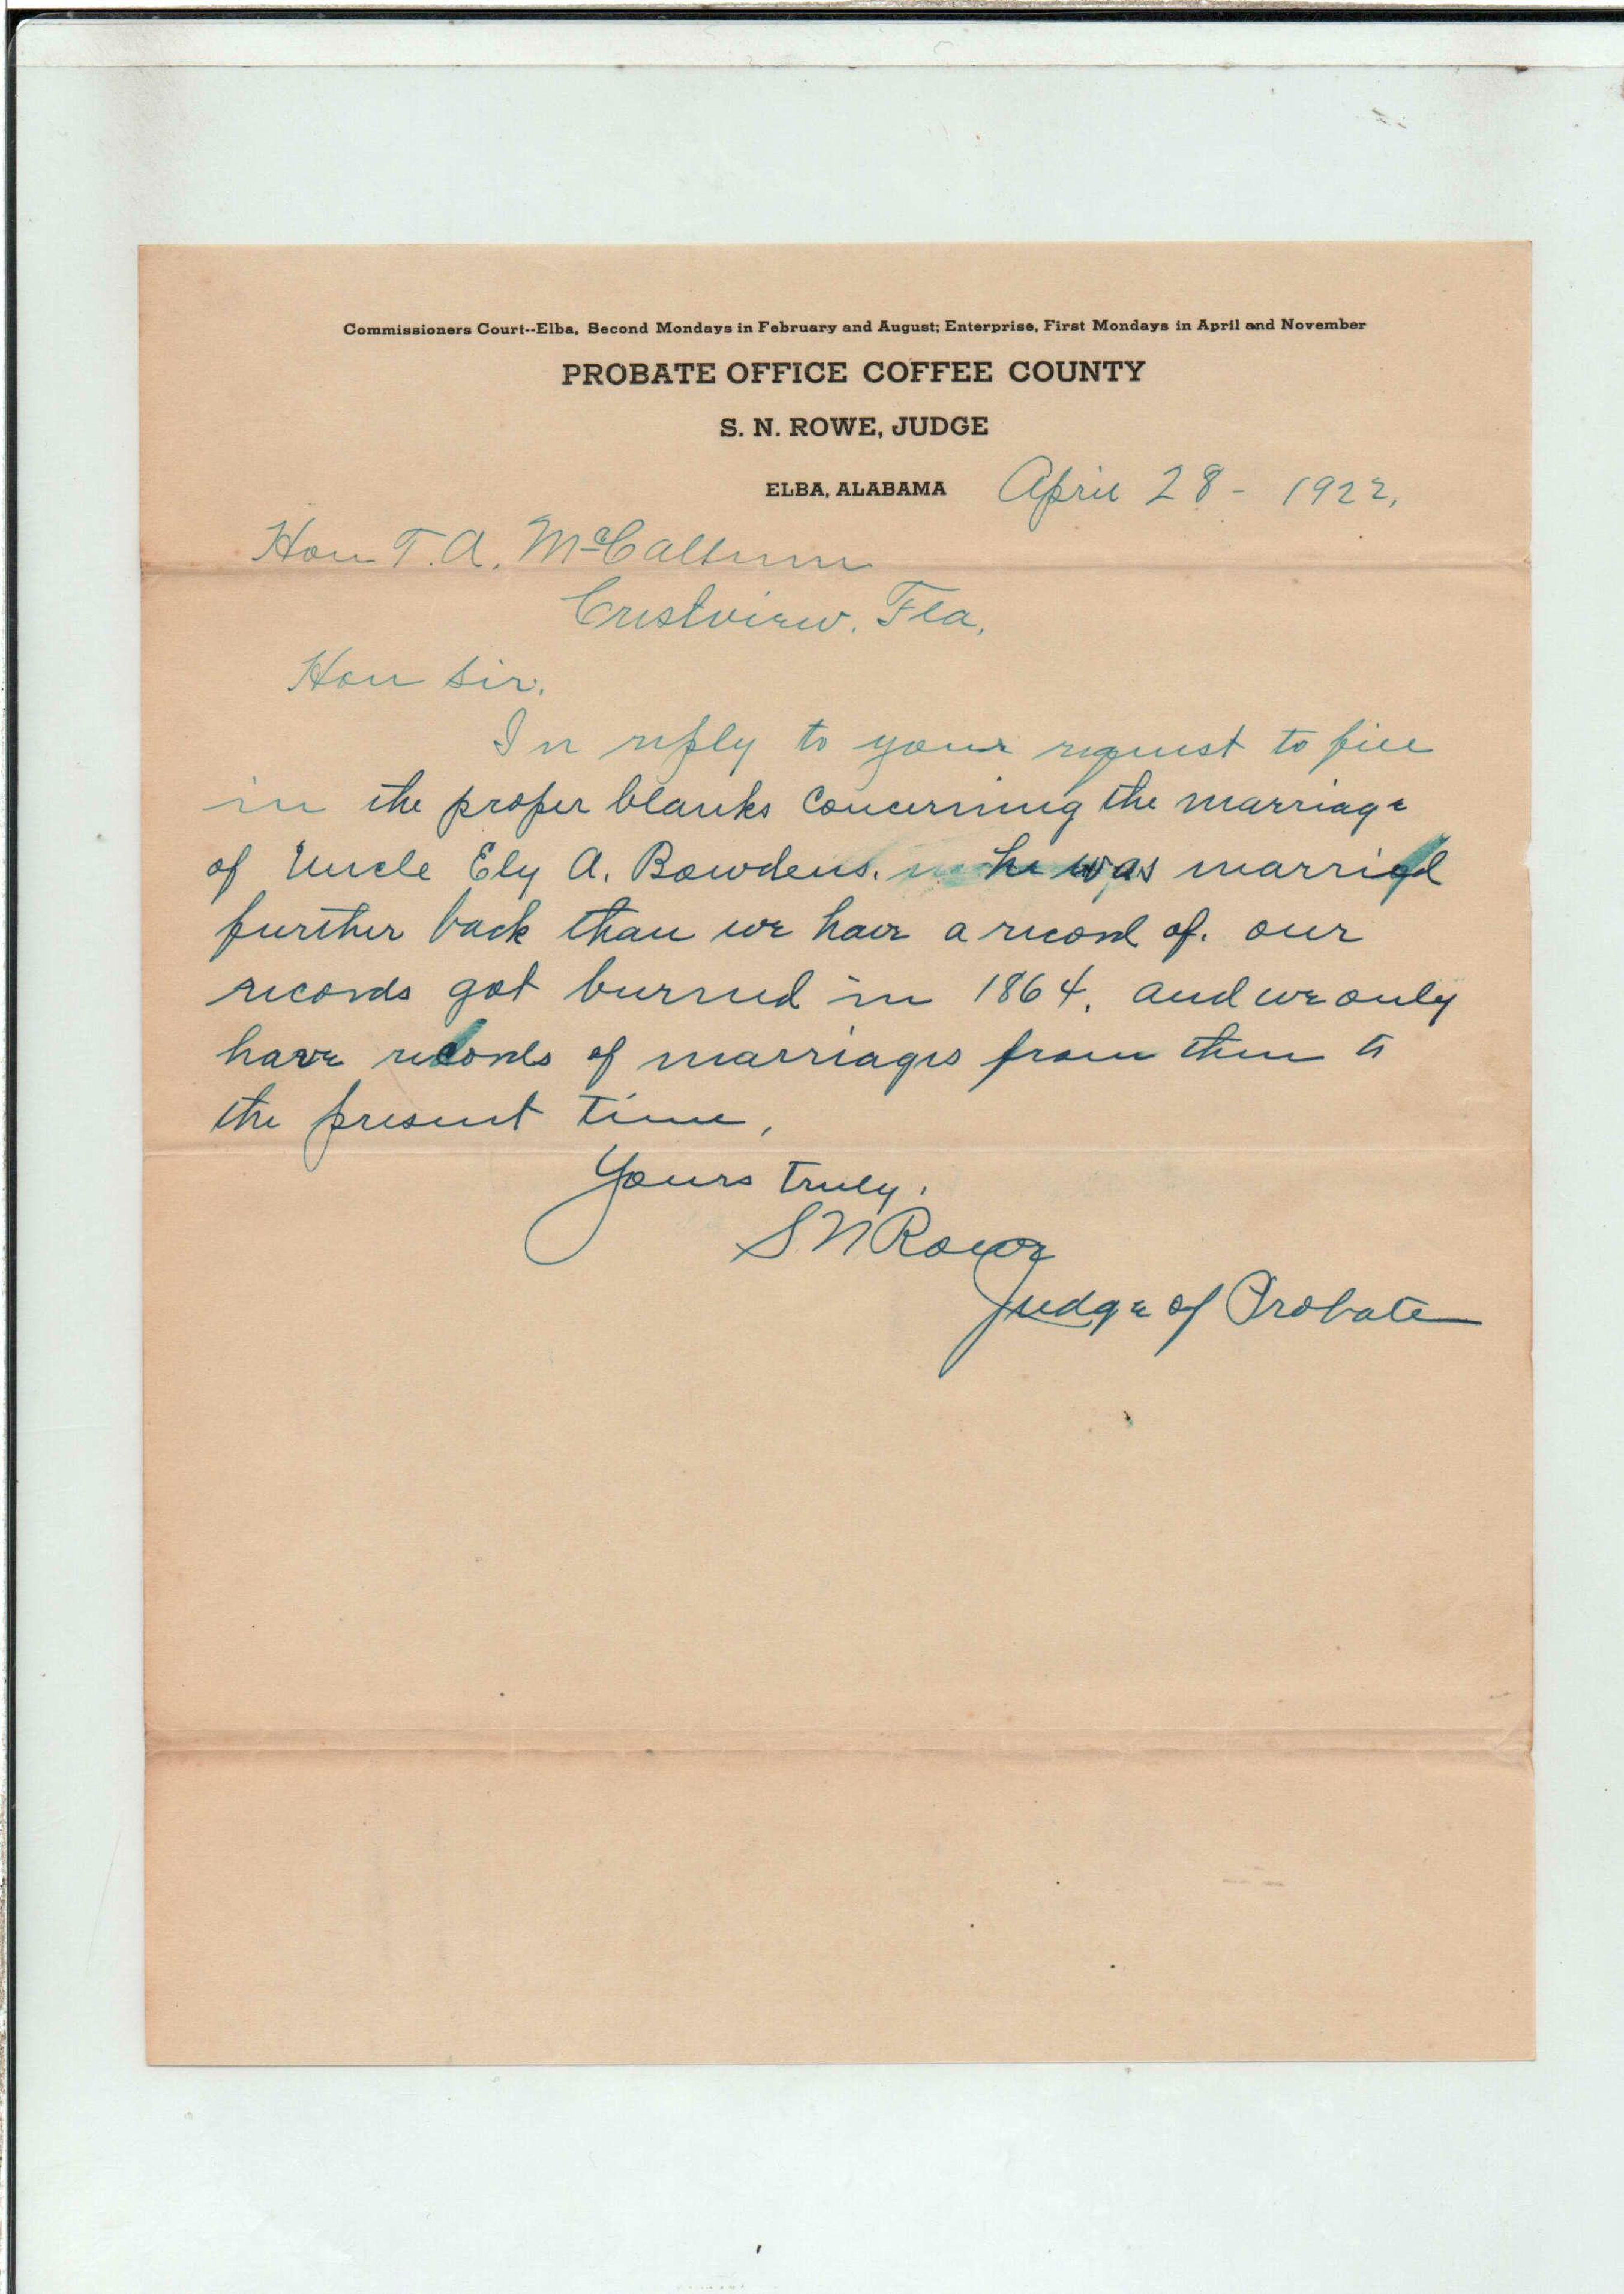 Commissioners Court--Elba, Second Mondays in February and August; Enterprise, First Mondays in April and November
PROBATE OFFICE COFFEE COUNTY
S. N. ROWE, JUDGE
ELBA, ALABAMA April 28 - 1922.
Hon T. A. 
Crestview. Fla.
Hon Sir.
In reply to your request to fill
in the proper blanks concerning the marriage
of Uncle Ely A. Bowdens. he was married
further back than we have a record of. our
records got burned in 1864. and we only
have records of marriages from then to
the present time,
Yours truly.
S N Rowe
Judge of Probate